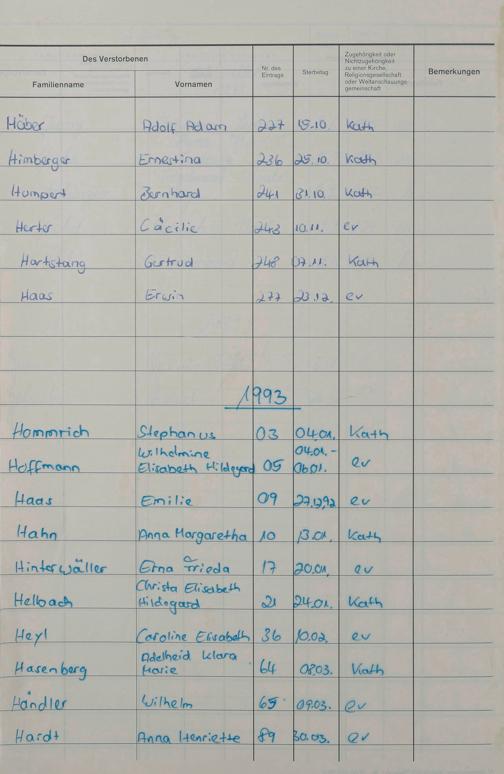 Des Verstorbenen
Familienname Vornamen Nr. des Eintrags Sterbetag Zugehörigkeit oder Nichtzugehörigkeit zu einer Kirche, Religionsgesellschaft oder Weltanschauungsgemeinschaft Bemerkungen
Häber Adolf Adam 227 15.10. Kath
Himberger Ernestina 236 25.10. Kath
Humpert Bernhard 241 31.10. Kath
Herter Cäcilie 243 10.11. ev
Hartstang Gertrud 248 17.11. Kath
Haas Erwin 277 23.12. ev
1993
Hommrich Stephanus 03 04.01. Kath
Hoffmann Wilhelmine Elisabeth Hildegard 05 04.01.- 06.01. ev
Haas Emilie 09 27.12.92 ev
Hahn Anna Margaretha 10 13.01. Kath
Hinterwäller Erna Frieda 17 20.01. ev
Helbach Christa Elisabeth Hildegard 21 24.01. Kath
Heyl Caroline Elisabeth 36 10.02. ev
Hasenberg Adelheid Klara Marie 64 08.03. Kath
Händler Wilhelm 65 09.03. ev
Hardt Anna Henriette 89 30.03. ev